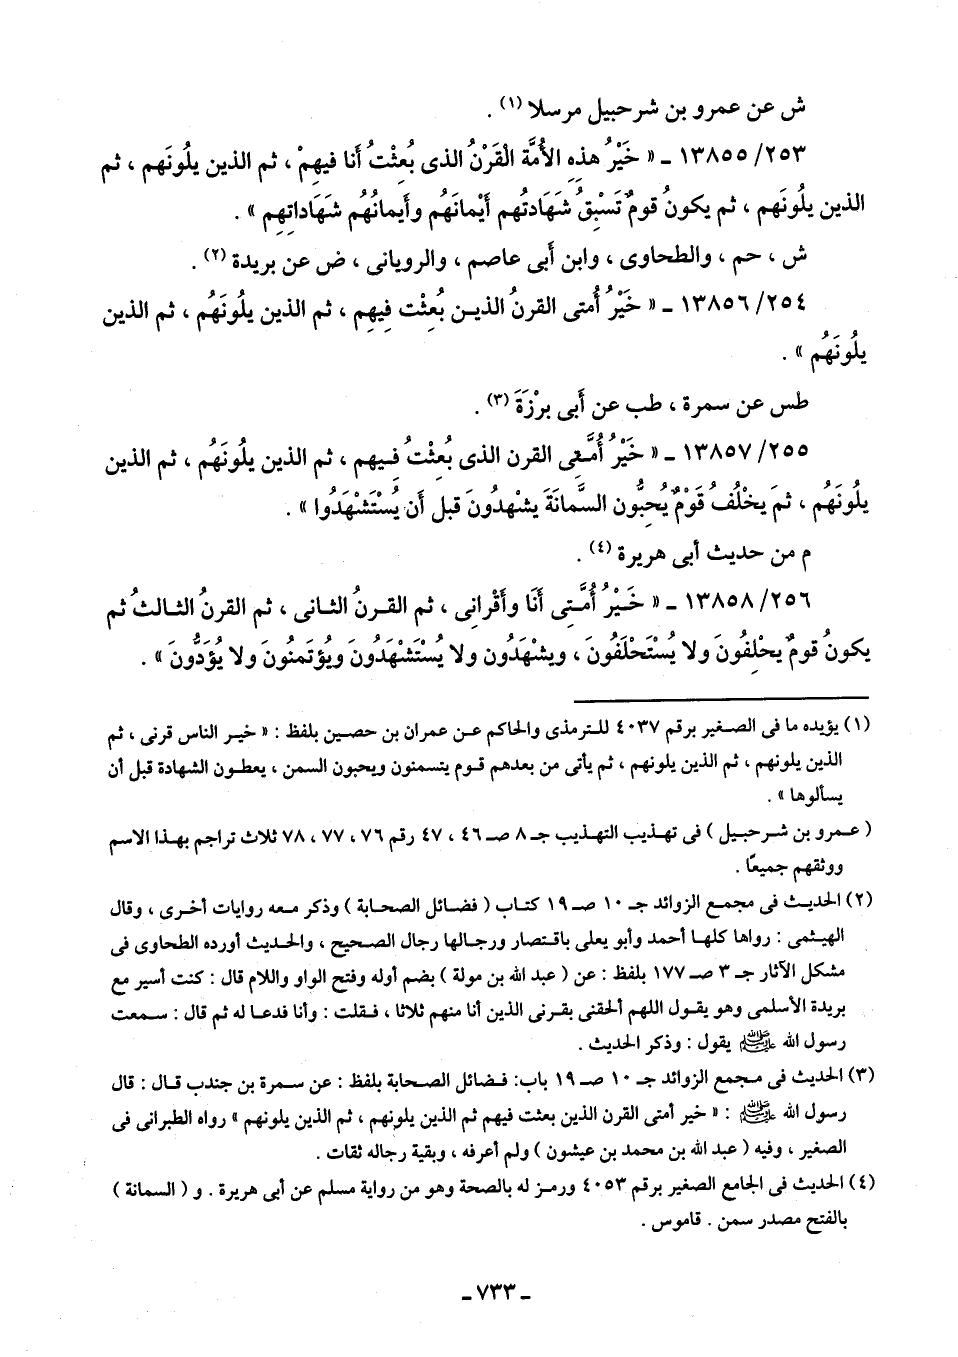 ش عن عمرو بن شرحبيل مرسلا (١) .
٢٥٣/ ١٣٨٥٥ ـ « خَيْرُ هذِهِ الأُمَّة الْقَرْنُ الذى بُعِثْتُ أَنا فيهِمْ ، ثم الذين يلُونَهم ، ثم
الذين يلُونَهم ، ثم يكونُ قومٌ تَسْبِقُ شَهَادَتُهم أَيْمانَهُم وأَيمانُهُم شَهَاداتِهِم » .
ش ، حم ، والطحاوى ، وابن أَبى عاصم ، والرويانى ، ض عن بريدة (٢) .
٢٥٤/ ١٣٨٥٦ ـ « خَيْرُ أُمتى القرنُ الذيـن بُعِثْت فِيهِم ، ثم الذين يلُونَهُم ، ثم الذين
يلُونَهُم » .
طس عن سمرة ، طب عن أَبى برْزَةَ (٣) .
٢٥٥/ ١٣٨٥٧ ـ « خَيْرُ أُمَّتِى القرن الذى بُعِثْتُ فـِيهِم ، ثم الذين يلُونَهُم ، ثم الذين
يلُونَهُم ، ثمَ يخْلُفُ قَوْمٌ يُحِبُّون السَّمانَةَ يشْهدُونَ قبل أَن يُسْتَشْهَدُوا » .
م من حديث أبى هريرة (٤) .
٢٥٦/ ١٣٨٥٨ ـ « خَـيْرُ أُمَّـتِى أَنَا وأَقْرانِى ، ثم القـرنُ الثـانى ، ثم القرنُ الثـالثُ ثم
يكونُ قومٌ يحْلِفُونَ ولا يُسْتَحْلَفُونَ ، ويشْهَدُون ولا يُسْتَشْهَدُونَ ويُؤتَمنُونَ ولا يُؤَدُّونَ » .
(١) يؤيده ما فى الصـغير برقم ٤٠٣٧ للـترمذى والحاكم عـن عمران بن حصـين بلفظ : « خيـر الناس قرنى ، ثم
الذين يلونهم ، ثم الذين يلونهم ، ثم يأتى من بعدهم قـوم يتسمنون ويحبون السمن ، يعطـون الشهادة قبل أن
يسألوها » .
( عـمرو بن شـرحبـيل ) فى تهـذيب التهـذيب جـ ٨ صـ ٤٦ ، ٤٧ رقم ٧٦ ، ٧٧ ، ٧٨ ثلاث تراجم بهـذا الاسم
ووثقهم جميعًا .
(٢) الحديـث فى مجمـع الزوائد جـ ١٠ صـ ١٩ كتـاب ( فضـائل الصحـابة ) وذكر مـعه روايات أخـرى ، وقال
الهيثمى : رواها كلهـا أحمد وأبو يعلى باقـتصار ورجـالها رجال الصـحيح ، والحديث أورده الطحاوى فى
مشكل الآثار جـ ٣ صـ ١٧٧ بلفظ : عن ( عبد الله بن مولة ) بضم أوله وفتح الواو واللام قال : كنت أسير مع
بريدة الأسلمى وهو يقول اللهم ألحقنى بقرنى الذين أنا منهم ثلاثا ، فـقلت : وأنا فدعـا له ثم قال : سـمعت
رسول الله ﷺ يقول : وذكر الحديث .
(٣) الحديث فى مـجمع الزوائد جـ ١٠ صـ ١٩ باب: فـضائل الصـحابة بلفظ : عن سمـرة بن جندب قـال : قال
رسول الله ﷺ : « خير أمتى القرن الذين بعثت فيهم ثم الذين يلونهم ، ثم الذين يلونهم » رواه الطبرانى فى
الصغير ، وفيه ( عبد الله بن محمد بن عيشون ) ولم أعرفه ، وبقية رجاله ثقات .
(٤) الحديث فى الجامع الصغير برقم ٤٠٥٣ ورمـز له بالصحة وهو من رواية مسلم عن أبى هريرة . و ( السمانة )
بالفتح مصدر سمن . قاموس .
ـ ٧٣٣ ـ